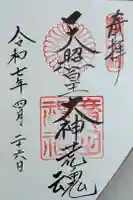 奉拝
天照皇大神荒魂
令和七年四月二十六日